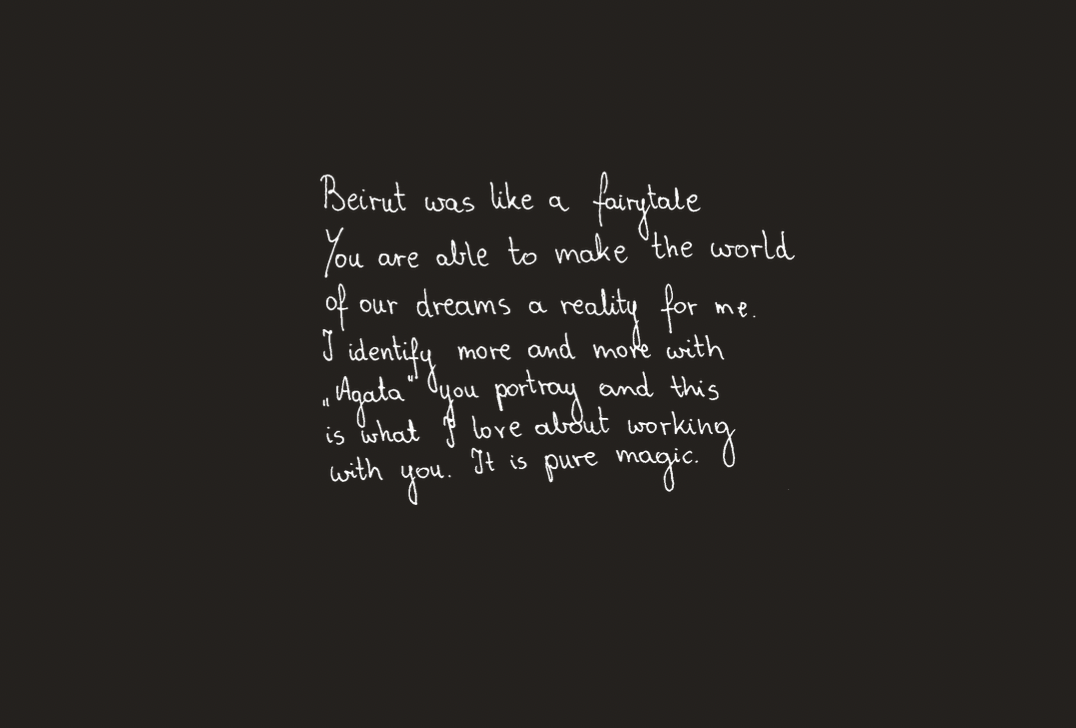 Beirut was like a fairytale
You are able to make the world
of our dreams a reality for me.
I identify more and more with
„Agata" you portray and this
is what I love about working
with you. It is pure magic.